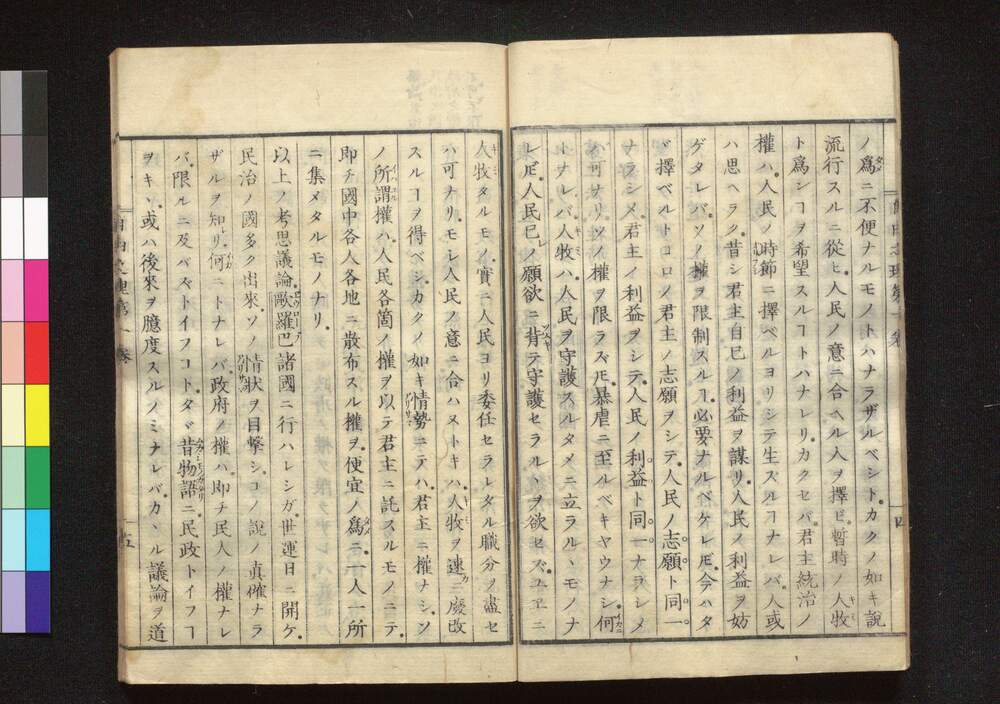 ノ爲ニ不便ナルモノトハナラザルベシト。カクノ如キ説
流行スルニ從ヒ。人民ノ意ニ合ヘル人ヲ擇ビ。暫時ノ人牧
ト爲シヿヲ希望スルヿトハナレリ。カクセバ。君主統治ノ
權ハ。人民ノ時節ニ擇ベルヨリシテ生ズルヿナレバ。人或
ハ思ヘラク。昔シ君主自已ノ利益ヲ謀リ。人民ノ利益ヲ妨
ゲタレバ。ソノ權ヲ限制スルヿ。必要ナルベケレ𪜈。今ハタ
ヾ擇ベルトコロノ君主ノ志願ヲシテ。人民ノ志願ト同一
ナラシメ。君主ノ利益ヲシテ。人民ノ利益ト同一ナラシメ
バ可ナリ。ソノ權ヲ限ラズ𪜈。暴虐ニ至ルベキヤウナシ。何
トナレバ。人牧ハ。人民ヲ守護スルタメニ立ラルヽモノナ
レ𪜈。人民已レノ願欲ニ背テ守護セラルヽヲ欲セズ。ユヱニ
人牧タルモノ。實ニ人民ヨリ委任セラレタル職分ヲ盡セ
バ可ナリ。モレ人民ノ意ニ合ハヌトキハ。人牧ヲ速ニ廢改
スルヿヲ得ベシ。カクノ如キ情勢ニテハ。君主ニ權ナシ。ソ
ノ所謂權ハ。人民各箇ノ權ヲ以テ君主ニ託スルモノニテ。
即チ國中各人各地ニ散布スル權ヲ。便宜ノ爲ニ。一人一所
ニ集メタルモノナリ。
以上ノ考思議論。歐羅巴諸國ニ行ハレシガ。世運日ニ開ケ。
民治ノ國多ク出來。ソノ情狀ヲ目撃シ。コノ説ノ真確ナラ
ザルヲ知レリ。何ニトナレバ。政府ノ權ハ。即チ民人ノ權ナレ
バ。限ルニ及バズトイフコト。タヾ昔物語ニ民政トイフヿ
ヲキヽ。或ハ後來ヲ臆度スルノミナレバ。カヽル議論ヲ道